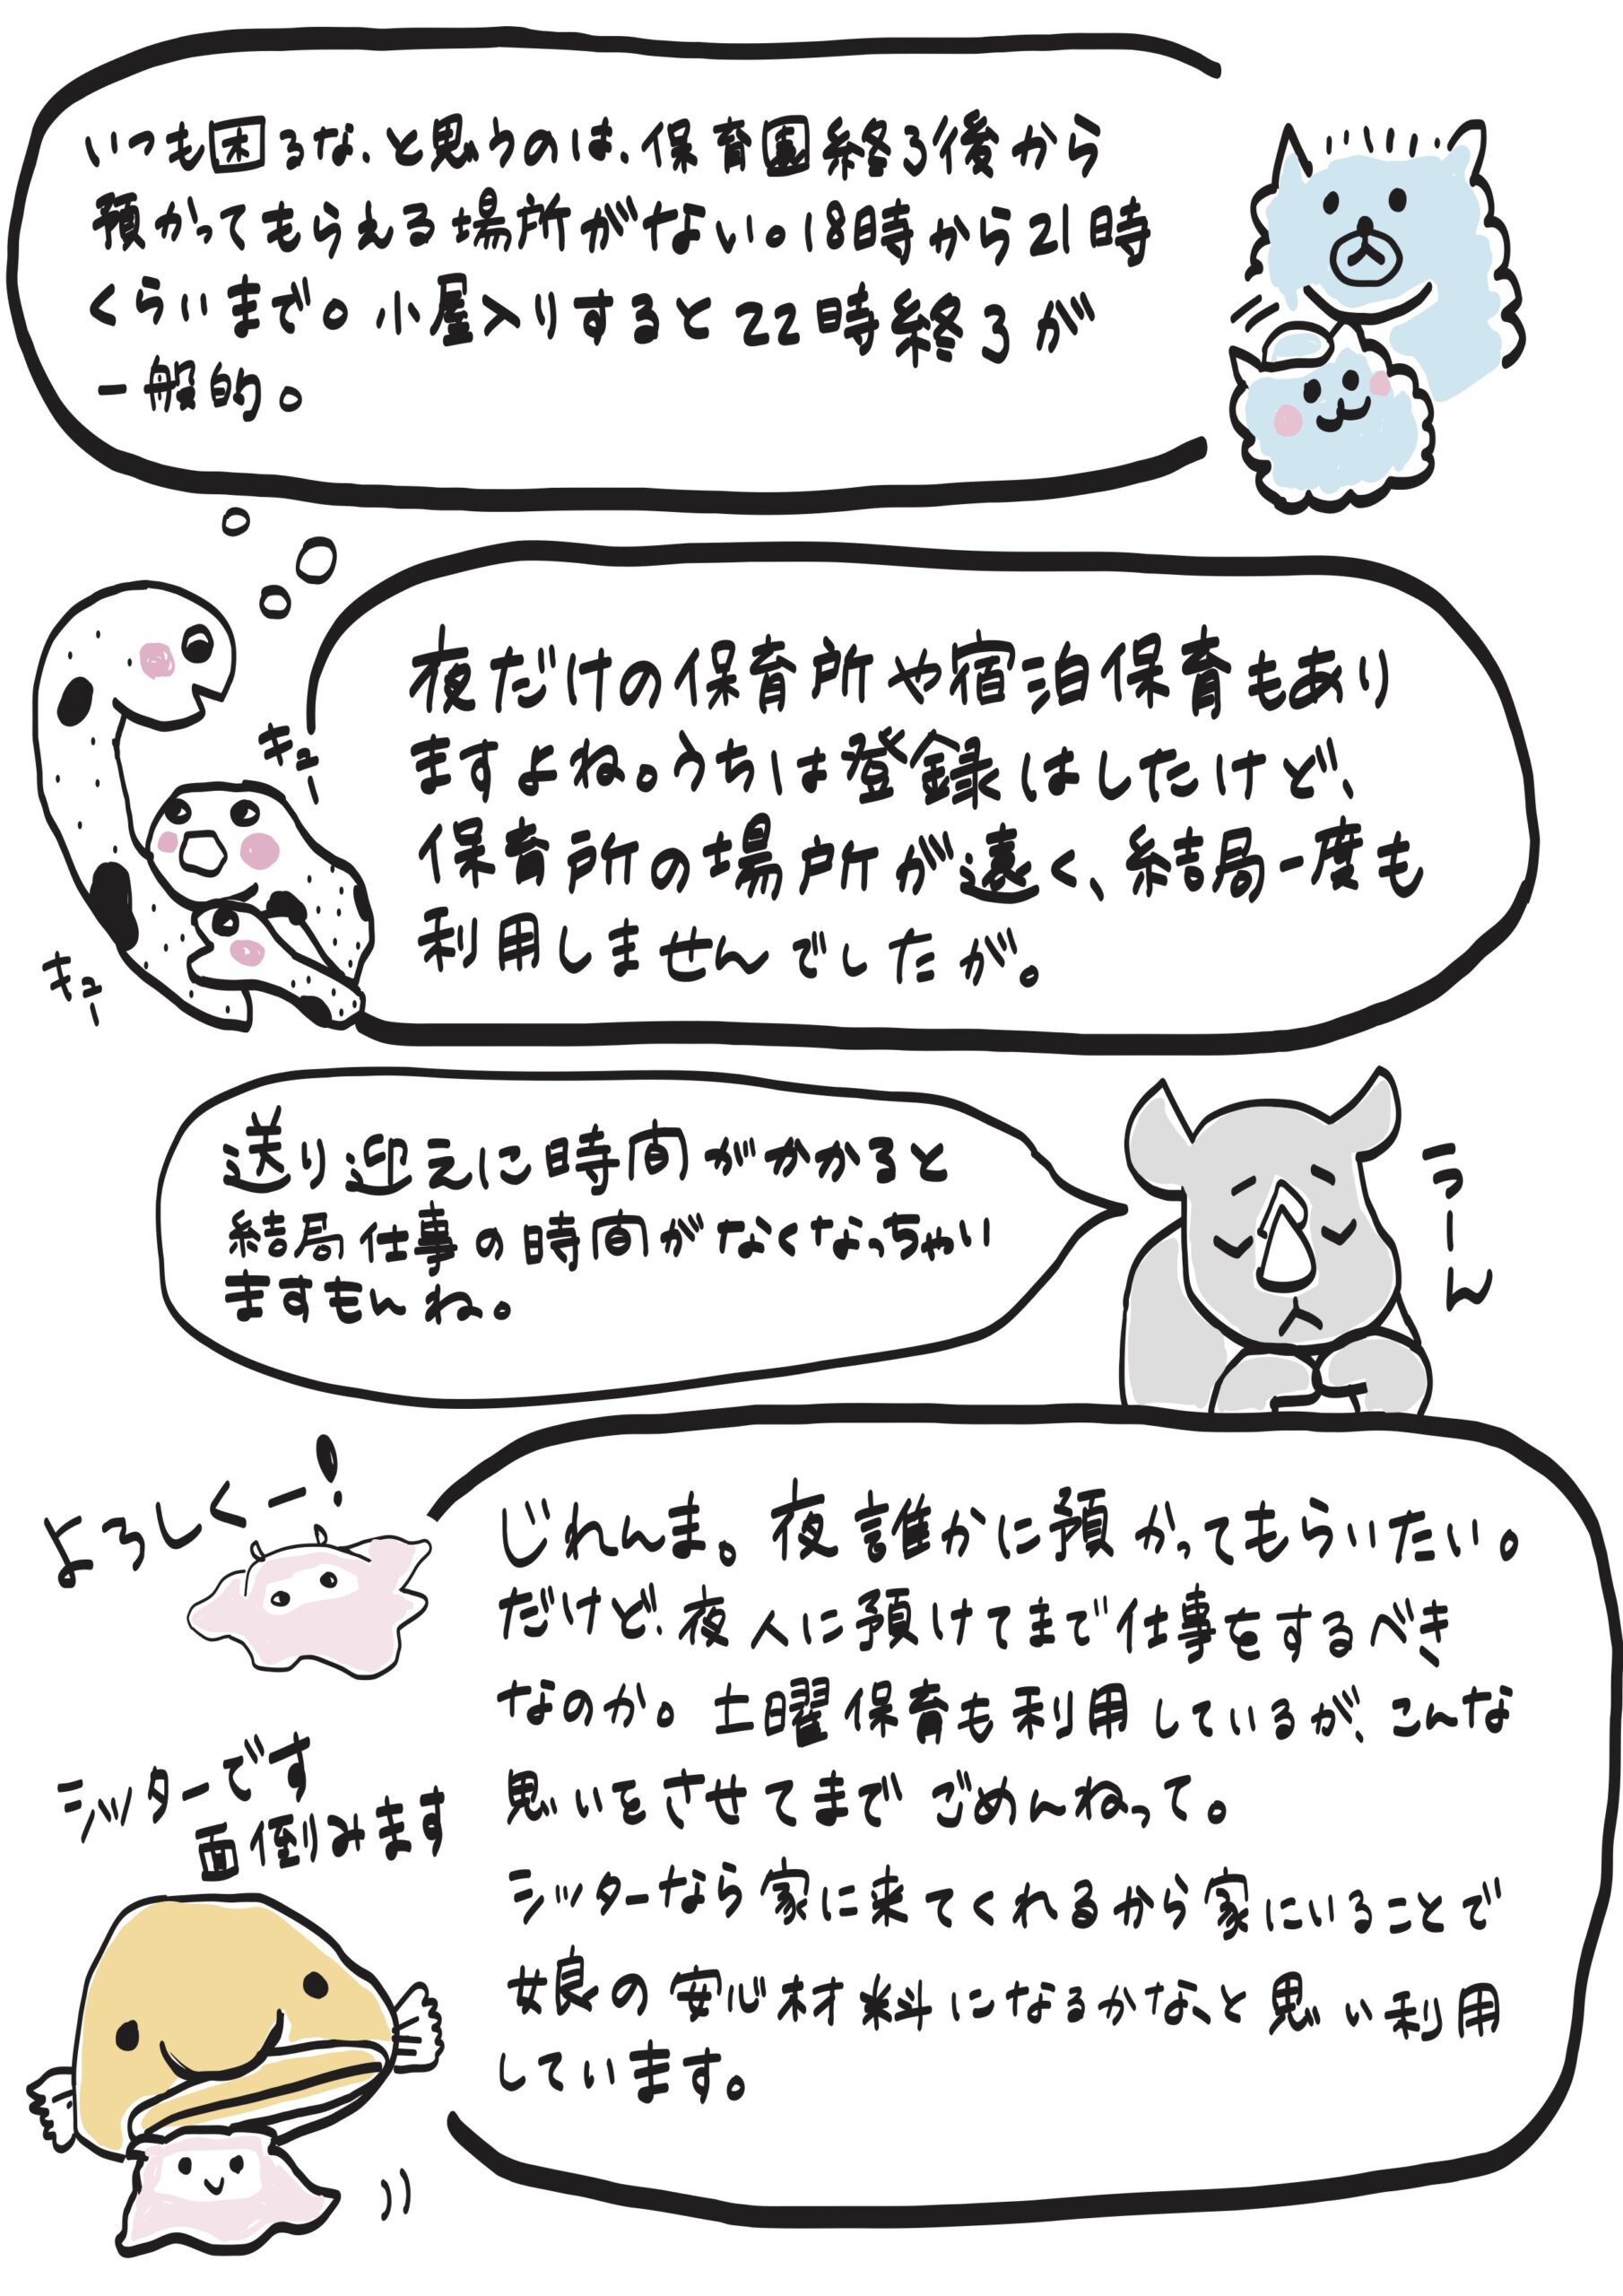 いつも困るな、と思うのは、保育園終了後から
預かってもらえる場所がない。18時から21時
くらいまで。小屋入りすると22時終了が
一般的。
キュー
キュー
夜だけの保育所や宿泊保育もあり
ますよね。うちは登録はしたけど、
保育所の場所が遠く、結局一度も
利用しませんでしたが。
送り迎えに時間がかかると
結局仕事の時間がなくなっちゃい
ますもんね。
うーん
よろしくー!
シッターです
面倒みます
じれんま。夜誰かに預かってもらいたい。
だけど、夜人に預けてまで仕事をするべき
なのか。土曜保育も利用しているが、こんな
思いをさせてまでごめんねって。
シッターなら家に来てくれるから家にいることで
娘の安心材料になるかな、と思い利用
しています。